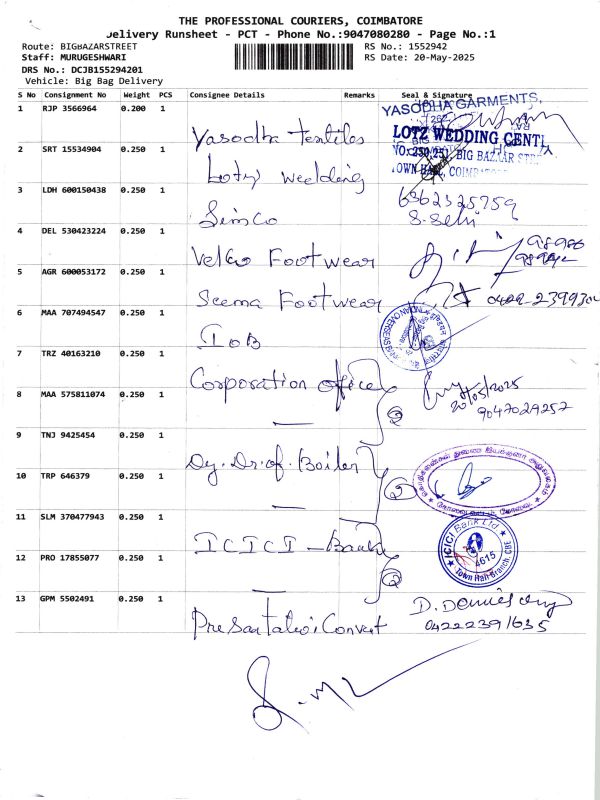 THE PROFESSIONAL COURIERS, COIMBATORE
Delivery Runsheet - PCT - Phone No.:9047080280 - Page No.:1
Route: BIGBAZARSTREET
RS No.: 1552942
Staff: MURUGESHWARI
RS Date: 20-May-2025
DRS No.: DCJB155294201
Vehicle: Big Bag Delivery
S No Consignment No Weight PCS Consignee Details Remarks Seal & Signature
1 RJP 3566964 0.200 1 Yasodha Textiles YASODHA GARMENTS,
2 SRT 15534904 0.250 1 Lotz Wedding LOTZ WEDDING CENT
NO:250/251, BIG BAZAAR STRE
TOWN HALL, COIMBATORE
3 LDH 600150438 0.250 1 Simco 6362325759
S. Selvi
4 DEL 530423224 0.250 1 Velko Footwear
5 AGR 600053172 0.250 1 Seema Footwear 0422-2399304
6 MAA 707494547 0.250 1 IOB
7 TRZ 40163210 0.250 1 Corporation office
8 MAA 575811074 0.250 1 — 2 20/05/2025
9047029257
9 TNJ 9425454 0.250 1 Dy. Dr. of. Boiler
10 TRP 646379 0.250 1 — 2
11 SLM 370477943 0.250 1 ICICI - Bank ICICI Bank Ltd
4615
Town Hall Branch, CBE
12 PRO 17855077 0.250 1 — 2
13 GPM 5502491 0.250 1 Presantation Convent
04222391635